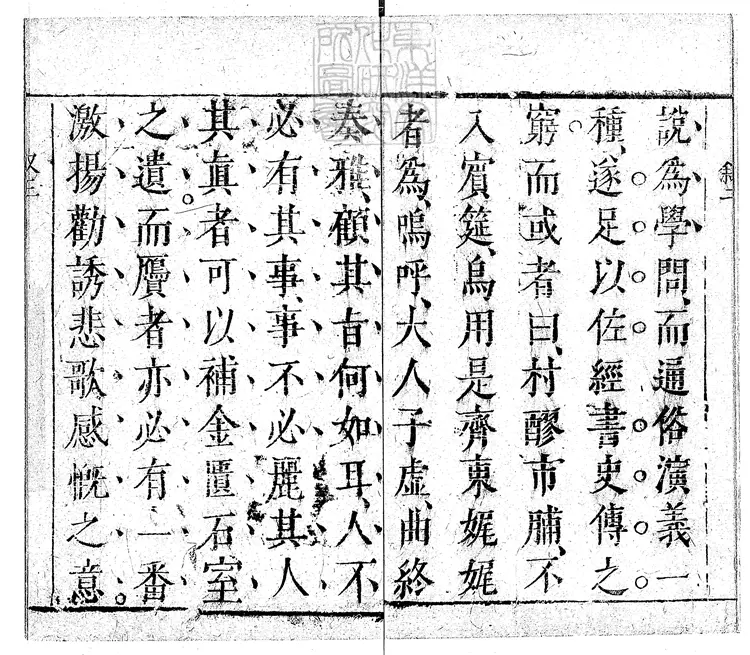 說爲學問、而通俗演義一
種、遂足以佐經書史傳之
窮、而或者曰、村醪市脯、不
入賓筵、烏用是齊東娓娓
者爲、嗚呼、大人子虛、曲終
奏雅、顧其旨何如耳、人不
必有其事、事不必麗其人
其眞者可以補金匱石室
之遺。而贋者亦必有一番
激揚勸誘悲歌感慨之意。